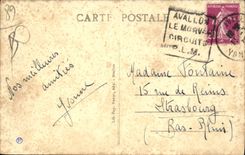 89
CARTE POSTALE
AVALLON
LE MORVAN
CIRCUITS
P.L.M.
Nos meilleures
amitiés
Madame Fontaine
15 rue de Reims
Strasbourg
(Bas-Rhin)